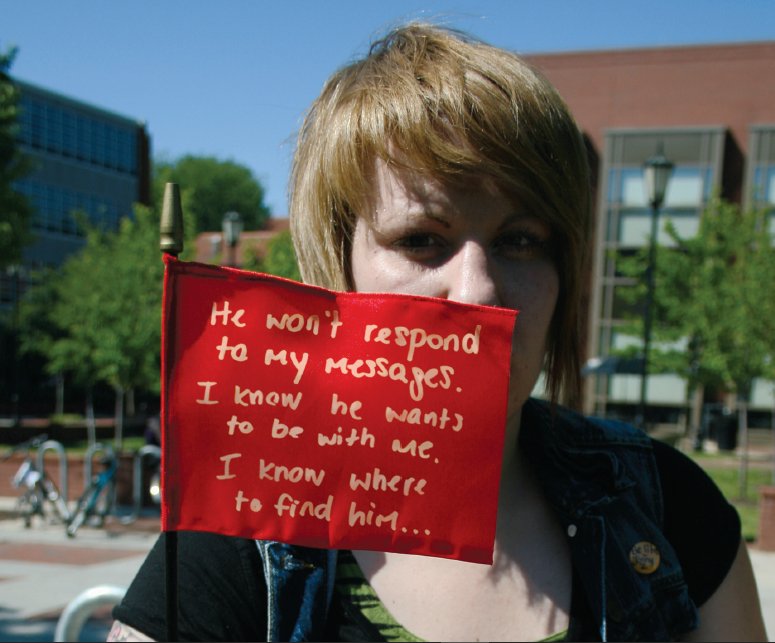 He won't respond
to my messages.
I know he wants
to be with me.
I know where
to find him...